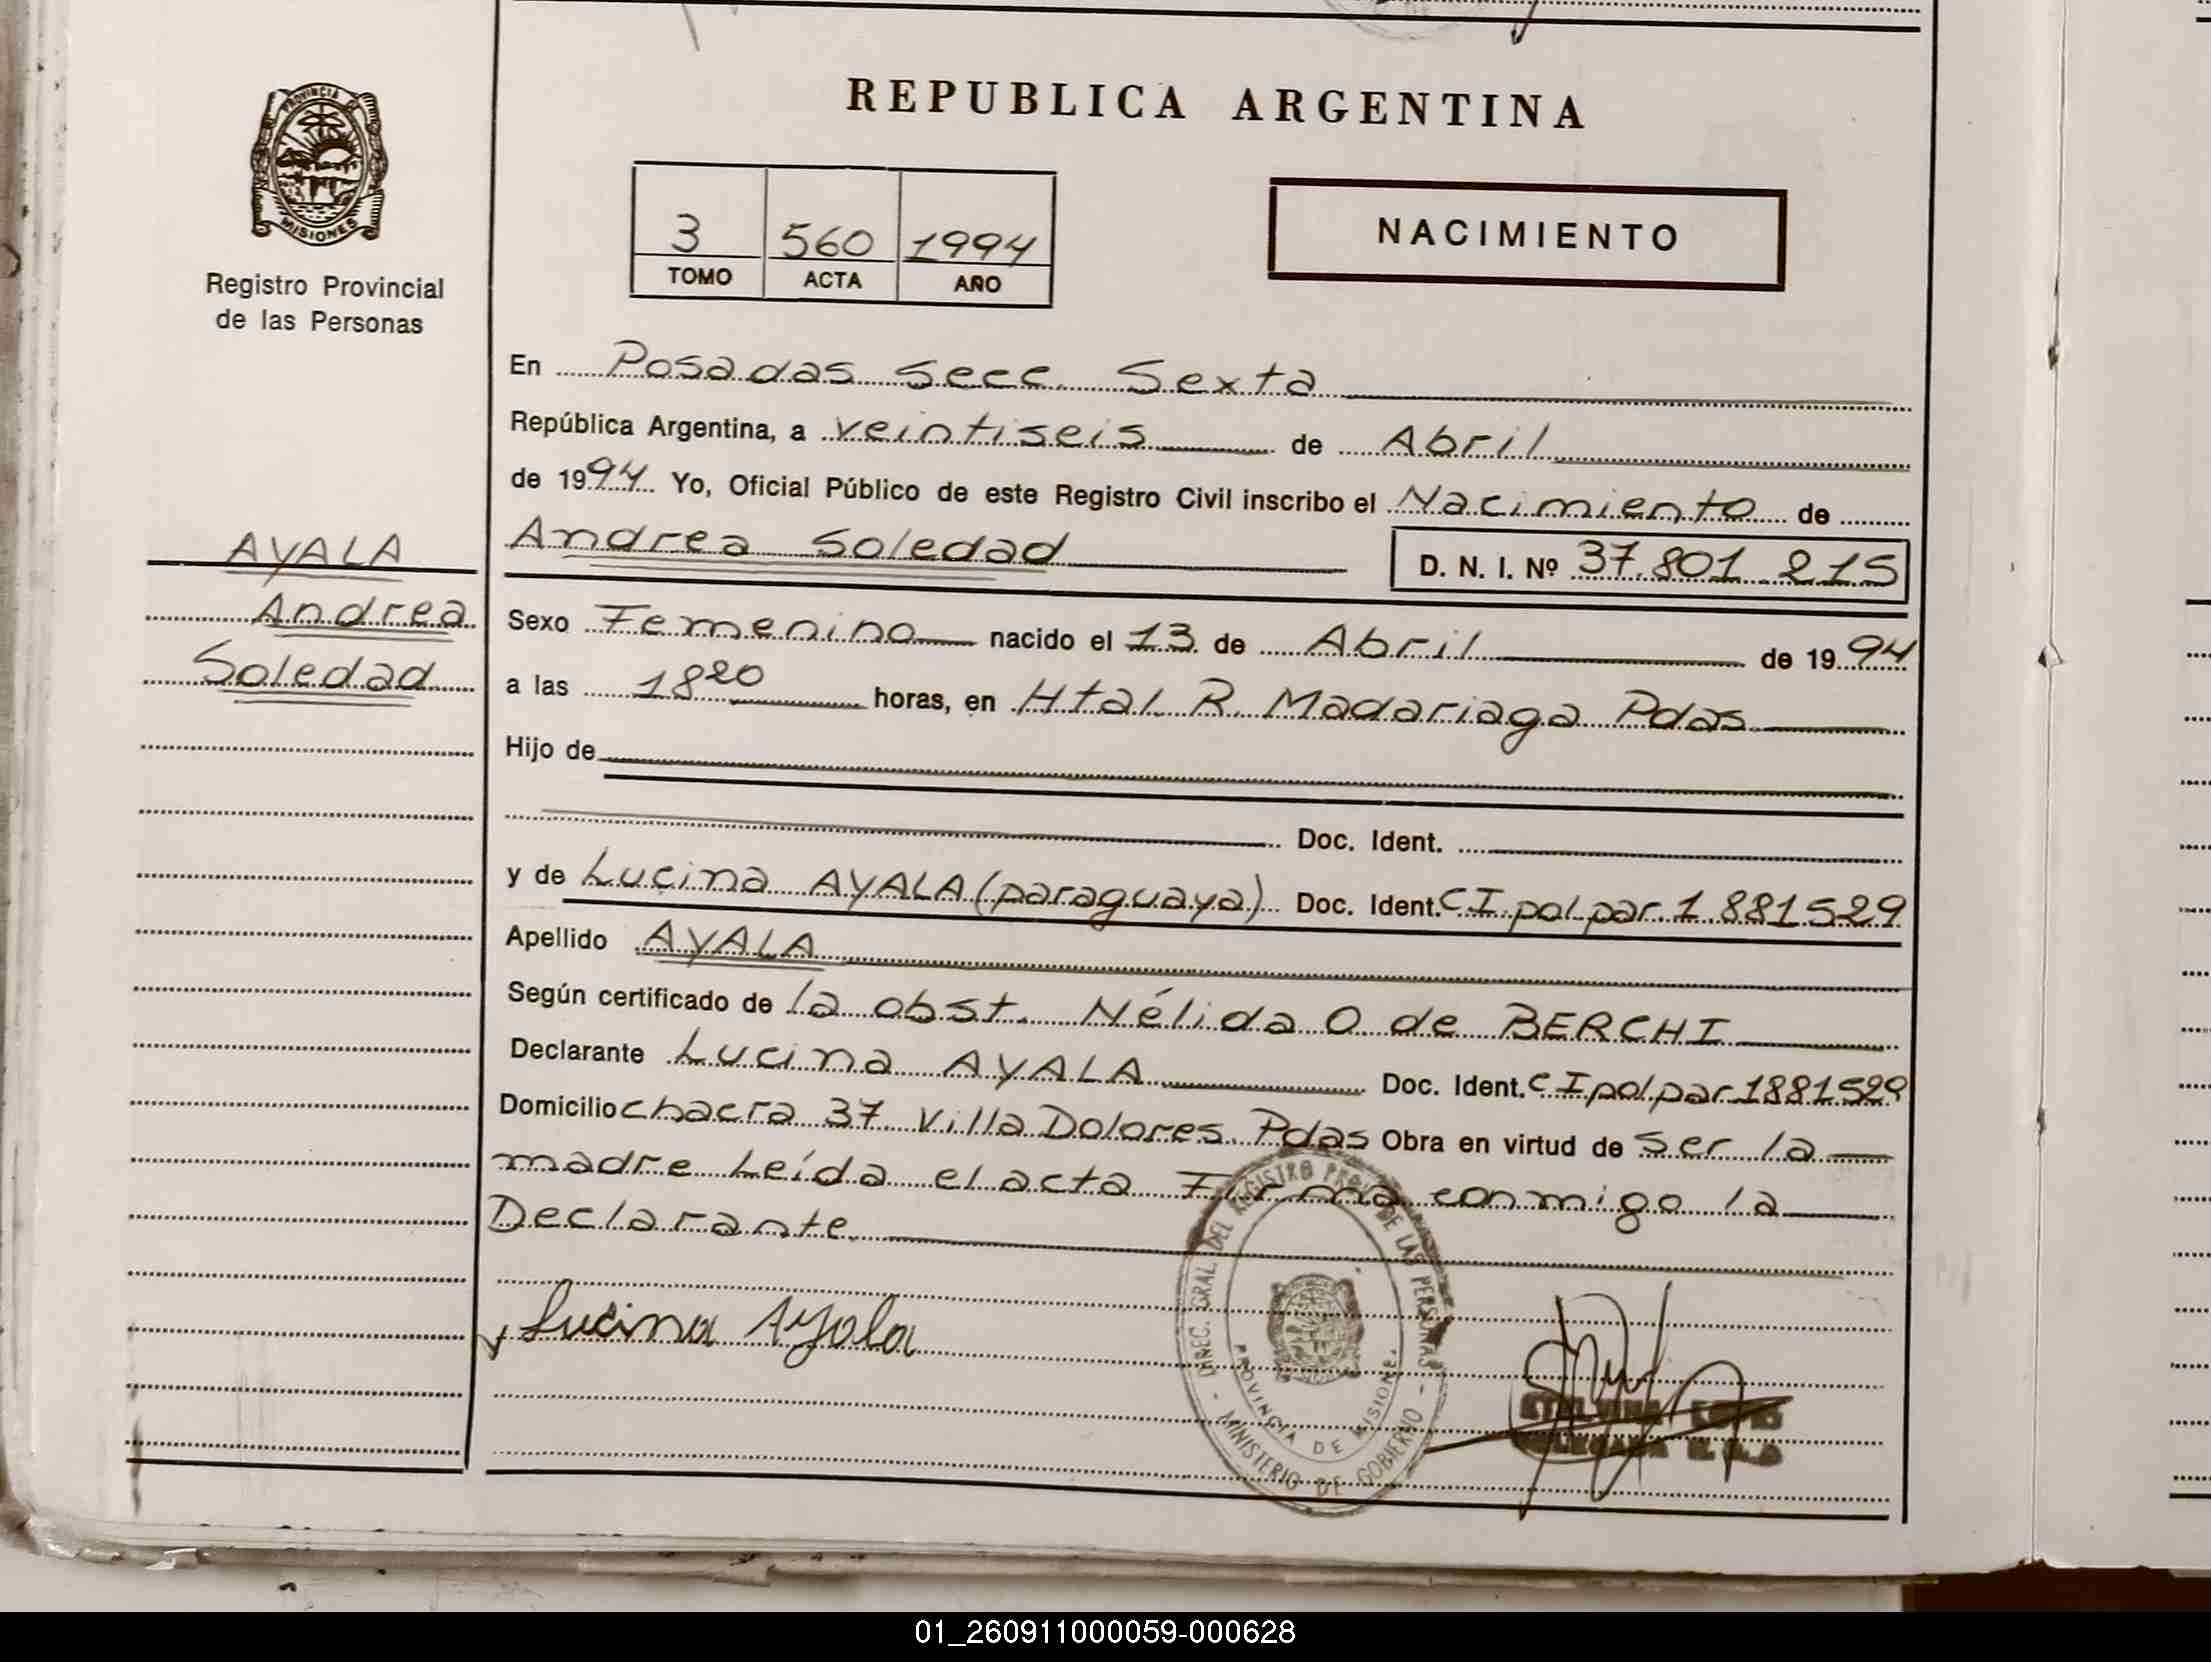 REPUBLICA ARGENTINA
PROVINCIA DE MISIONES
Registro Provincial
de las Personas
3 560 1994
TOMO ACTA AÑO
NACIMIENTO
En Posadas Secc. Sexta
República Argentina, a veintiseis de Abril
de 1994 Yo, Oficial Público de este Registro Civil inscribo el Nacimiento de
Andrea Soledad D. N. I. Nº 37.801.215
AYALA
Andrea
Soledad
Sexo Femenino nacido el 13 de Abril de 1994
a las 18 20 horas, en Htal. R. Madariaga Pdas
Hijo de
Doc. Ident.
y de Lucina AYALA (paraguaya) Doc. Ident. C I pol par. 1 881529
Apellido AYALA
Según certificado de la obst. Nélida O de BERCHI
Declarante Lucina AYALA Doc. Ident. C I pol par 1881529
Domicilio chacra 37 Villa Dolores Pdas Obra en virtud de ser la
madre Leída el acta Firma conmigo la
Declarante
Lucina Ayala
DIREC. GRAL. DEL REGISTRO PROV. DE LAS PERSONAS
PROVINCIA DE MISIONES
MINISTERIO DE GOBIERNO
01_260911000059-000628